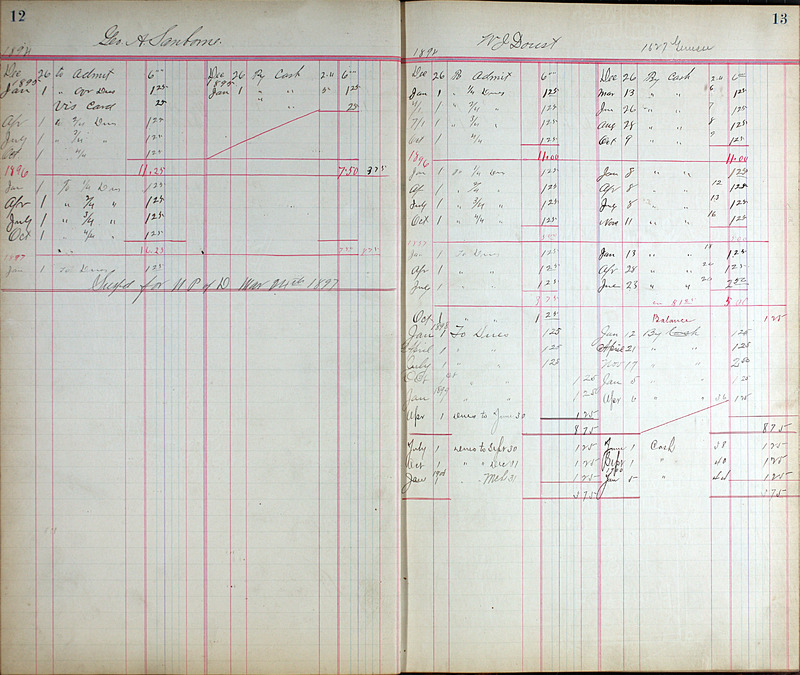 12
Geo. A. Sanborne.
1894
Dec 26 to Admit 6 00 Dec 26 By Cash 2.11 6 00
1895
Jan 1 " Qr Dues 1 25 Jan 1 " " 5 1 25
Vis Card 25 " 25
Apr 1 " 2/4 Dues 1 25
July 1 " 3/4 " 1 25
Oct 1 " 4/4 1 25
1896 11.25 7.50 3 75
Jan 1 To 1/4 Dues 1 25
Apr 1 " 2/4 " 1 25
July 1 " 3/4 " 1 25
Oct 1 " 4/4 " 1 25
16.25
1897
Jan 1 To Dues 1 25
for N P of D Mar 1897
13
W J Doust 1627 Genesee
1894
Dec 26 Admit 6 00 Dec 26 By Cash 2.11 6 00
Jan 1 " 1/4 Dues 1 25 Mar 13 " " 6 1 25
4/1 " 2/4 " 1 25 Jun 26 " " 7 1 25
7/1 " 3/4 " 1 25 Aug 28 " " 8 1 25
Oct 1 4/4 1 25 Oct 9 " " 9 1 25
1896 11.00 11.00
Jan 1 To 1/4 Dues 1 25 Jan 8 " " 1 25
Ap 1 " 2/4 " 1 25 Apr 8 " " 12 1 25
July 1 " 3/4 " 1 25 July 8 " " 13 1 25
Oct 1 " 4/4 " 1 25 Nov 11 " " 16 1 25
1897 5 00 5 00
Jan 1 To Dues 1 25 Jan 13 " " 18 1 25
Apr 1 " " 1 25 Apr 28 " " 20 1 25
July 1 " " 1 25 June 23 " " 2 50
3 75 5 00
Oct 1 " " 1 25 Balance 1 25
1898
Jan 1 To Dues 1 25 Jan 12 By Cash 1 25
April 1 " " 1 25 April 21 " " 1 25
July 1 " " 1 25 Nov 17 " " 2 50
Oct 1 " " 1 25 Jan 5 " " 1 25
1899
Jan 1 " " 1 25 Apr 6 " " 36 1 25
Apr 1 Dues to June 30 1 25
8 75 8 75
July 1 Dues to Sept 30 1 25 June 1 Cash 38 1 25
Oct 1 " " Dec 31 1 25 Sept 1 " 40 1 25
1900
Jan 1 " " Mch 31 1 25 Jan 5 " 44 1 25
3 75 3 75